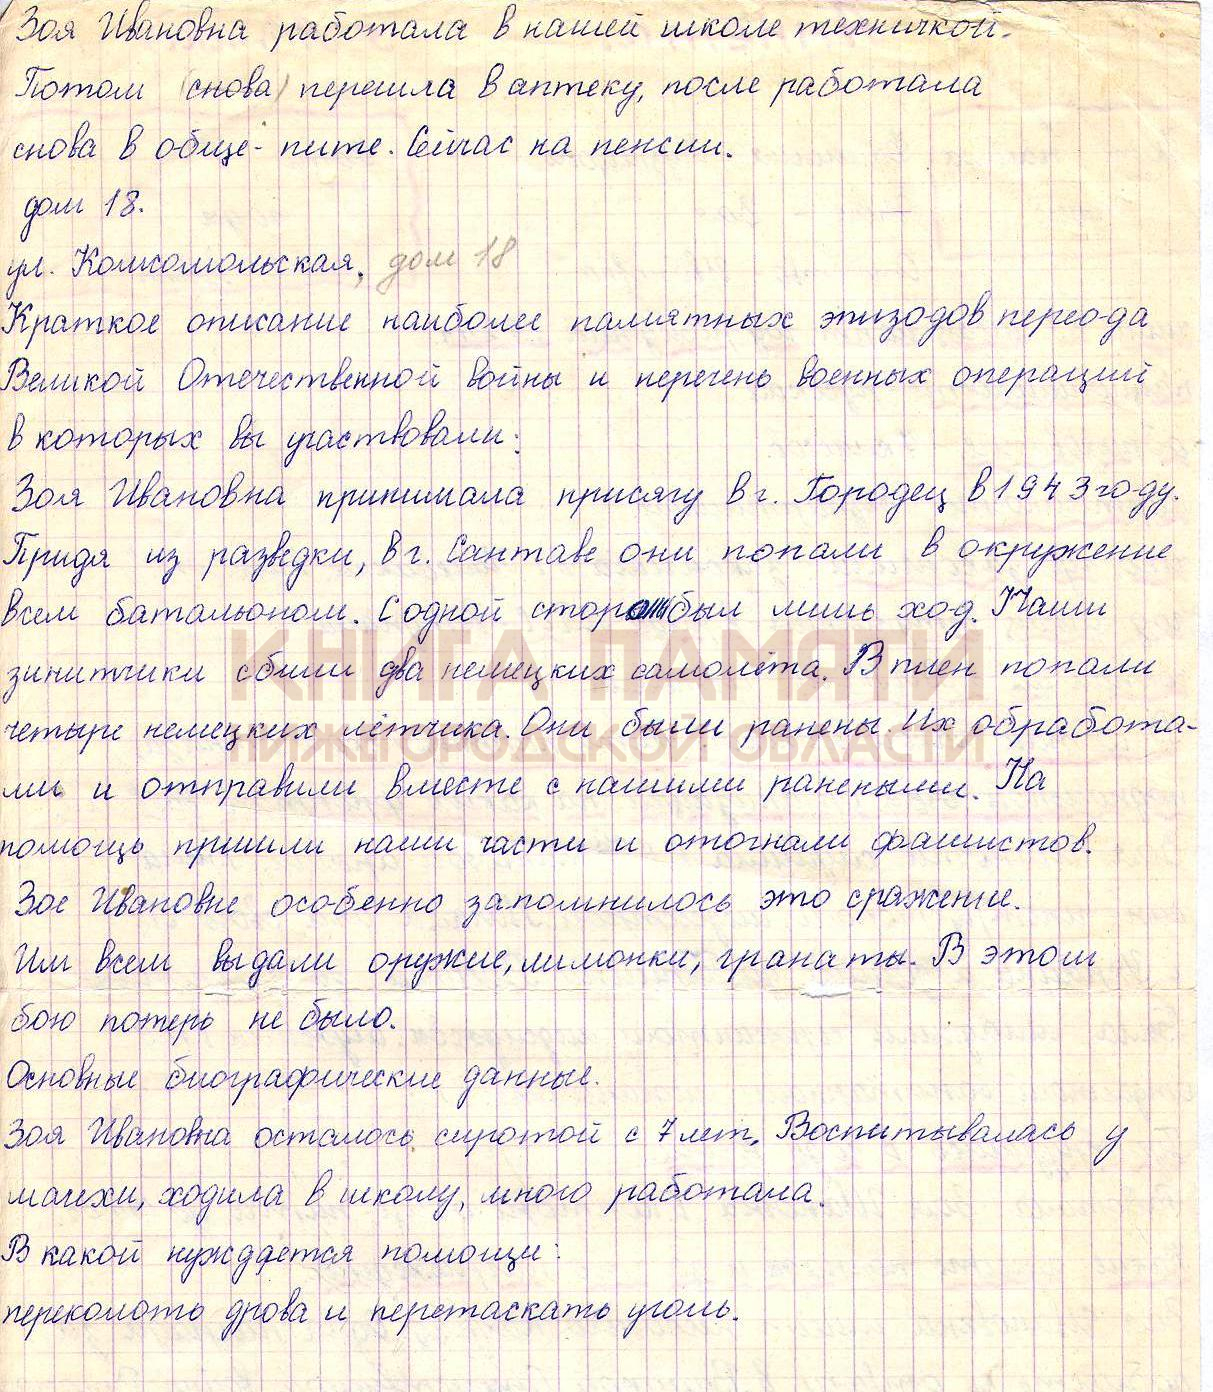 Зоя Ивановна работала в нашей школе техничкой.
Потом (снова) перешла в аптеку, после работала
снова в обще-пите. Сейчас на пенсии.
дом 18.
ул. Комсомольская, дом 18
Краткое описание наиболее памятных эпизодов переода
Великой Отечественной войны и перечень военных операций
в которых вы участвовали:
Зоя Ивановна принимала присягу в г. Городец в 1943 году.
Придя из разведки, в г. Сантаве они попали в окружение
всем батальоном. С одной стор был лишь ход. Наши
зинитчики сбили два немецких самолёта. В плен попали
КНИГА ПАМЯТИ
четыре немецких лётчика. Они были ранены. Их обработа-
НИЖЕГОРОДСКОЙ ОБЛАСТИ
ли и отправили вместе с нашими ранеными. На
помощь пришли наши части и отогнали фашистов.
Зое Ивановне особенно запомнилось это сражение.
Им всем выдали оружие, лимонки, гранаты. В этом
бою потерь не было.
Основные биографические данные.
Зоя Ивановна осталась сиротой с 7 лет. Воспитывалась у
мачехи, ходила в школу, много работала.
В какой нуждается помощи:
переколоть дрова и перетаскать уголь.